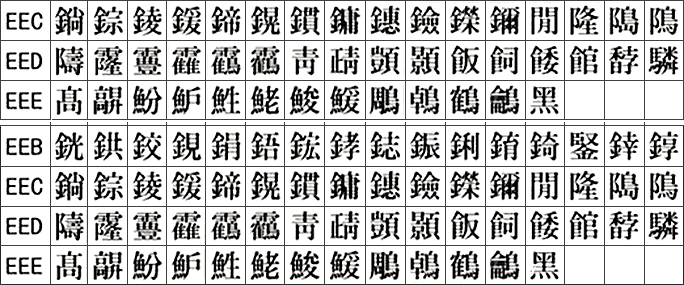 EEC 鋿 錝 錂 鍰 鍗 鎤 鏆 鏞 鏸 鐱 鑅 鑈 閒 隆 﨩 隝
EED 隯 霳 霻 靃 靍 靏 靑 靕 顗 顥 飯 飼 餧 館 馞 驎
EEE 髙 髜 魵 魲 鮏 鮱 鮻 鰀 鵰 鵫 鶴 鸙 黑
EEB 銧 鉷 鉸 鋧 鋗 鋙 鋐 﨧 鋕 鋠 鋓 錥 錡 鋻 﨨 錞
EEC 鋿 錝 錂 鍰 鍗 鎤 鏆 鏞 鏸 鐱 鑅 鑈 閒 隆 﨩 隝
EED 隯 霳 霻 靃 靍 靏 靑 靕 顗 顥 飯 飼 餧 館 馞 驎
EEE 髙 髜 魵 魲 鮏 鮱 鮻 鰀 鵰 鵫 鶴 鸙 黑